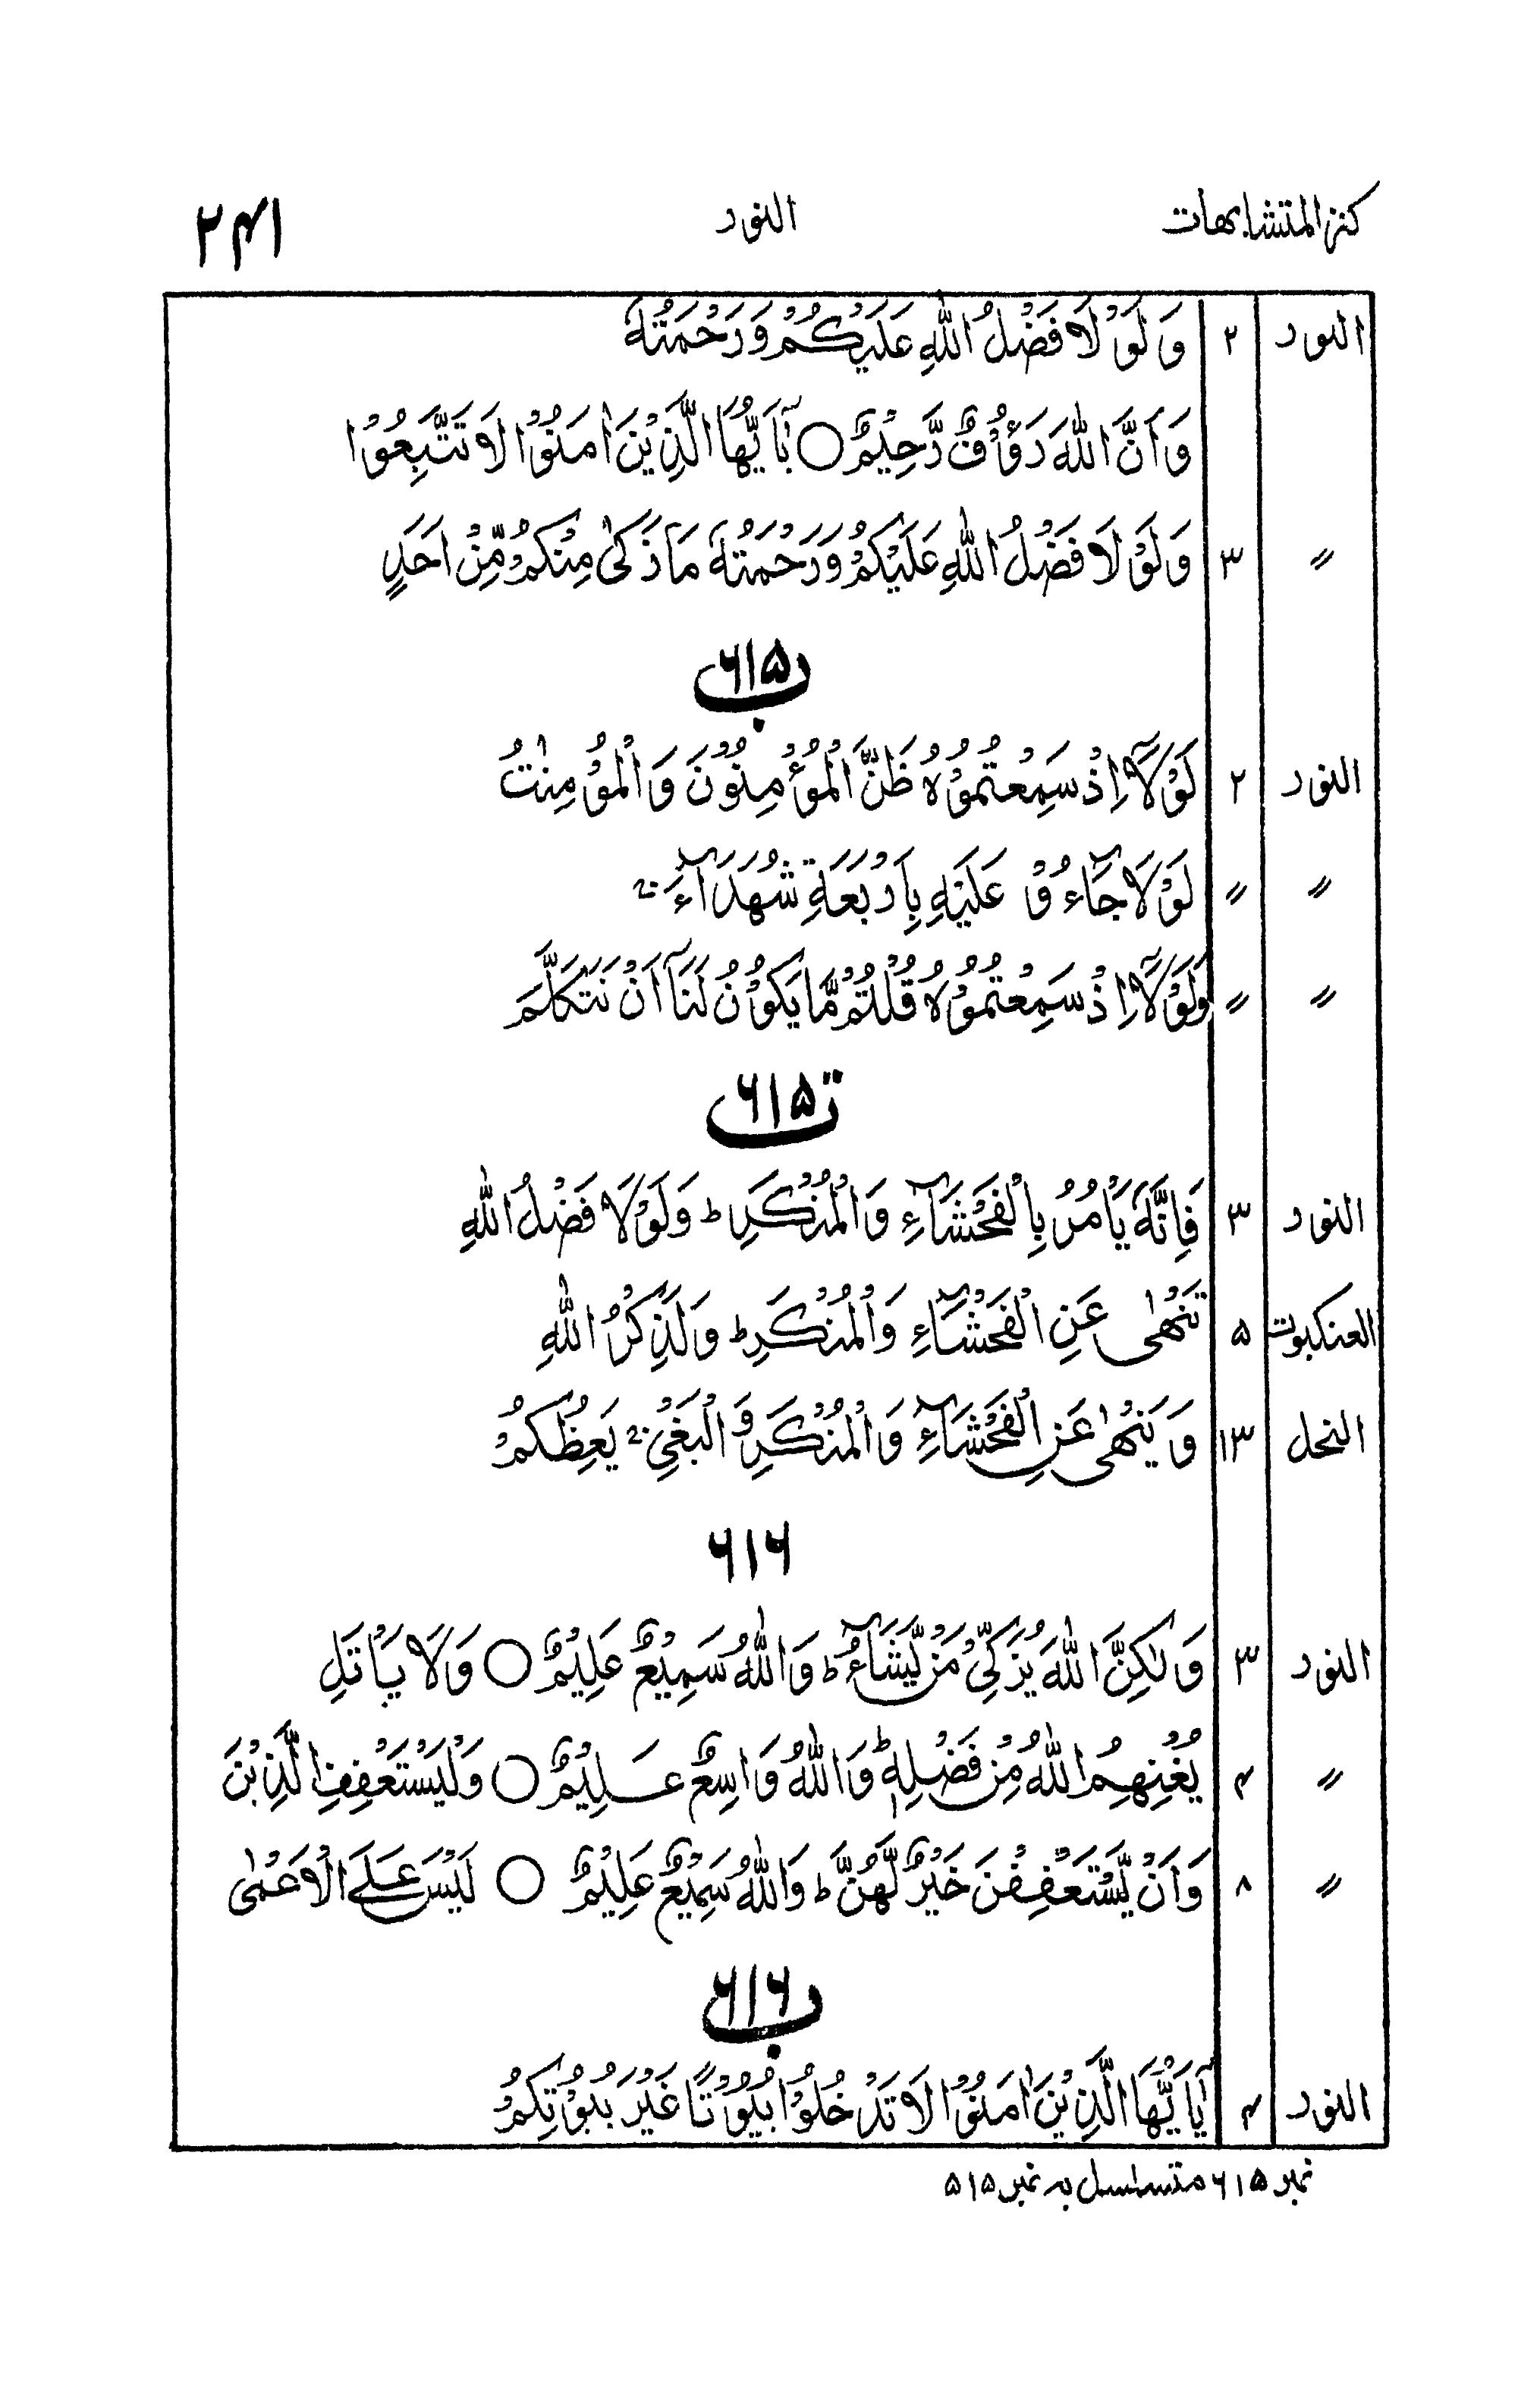 كنز المتشابهات النور ٢٤١
النور ٢ وَلَوْلَا فَضْلُ اللّٰهِ عَلَيْكُمْ وَرَحْمَتُهٗ
وَاَنَّ اللّٰهَ رَءُوْفٌ رَّحِيْمٌ ○ يٰٓاَيُّهَا الَّذِيْنَ اٰمَنُوْا لَا تَتَّبِعُوْا
〃 ٣ وَلَوْلَا فَضْلُ اللّٰهِ عَلَيْكُمْ وَرَحْمَتُهٗ مَا زَكٰى مِنْكُمْ مِّنْ اَحَدٍ
۶۱۵ ب
النور ٢ لَوْلَآ اِذْ سَمِعْتُمُوْهُ ظَنَّ الْمُؤْمِنُوْنَ وَالْمُؤْمِنٰتُ
〃 〃 لَوْلَا جَآءُوْ عَلَيْهِ بِاَرْبَعَةِ شُهَدَآءَ ۚ
〃 〃 وَلَوْلَآ اِذْ سَمِعْتُمُوْهُ قُلْتُمْ مَّا يَكُوْنُ لَنَآ اَنْ نَّتَكَلَّمَ
۶۱۵ ت
النور ٣ فَاِنَّهٗ يَاْمُرُ بِالْفَحْشَآءِ وَالْمُنْكَرِ ؕ وَلَوْلَا فَضْلُ اللّٰهِ
العنكبوت ۵ تَنْهٰى عَنِ الْفَحْشَآءِ وَالْمُنْكَرِ ؕ وَلَذِكْرُ اللّٰهِ
النحل ١٣ وَيَنْهٰى عَنِ الْفَحْشَآءِ وَالْمُنْكَرِ وَالْبَغْيِ ۚ يَعِظُكُمْ
۶۱۶
النور ٣ وَلٰكِنَّ اللّٰهَ يُزَكِّيْ مَنْ يَّشَآءُ ؕ وَاللّٰهُ سَمِيْعٌ عَلِيْمٌ ○ وَلَا يَاْتَلِ
〃 ۴ يُغْنِهِمُ اللّٰهُ مِنْ فَضْلِهٖ ؕ وَاللّٰهُ وَاسِعٌ عَلِيْمٌ ○ وَلْيَسْتَعْفِفِ الَّذِيْنَ
〃 ٨ وَاَنْ يَّسْتَعْفِفْنَ خَيْرٌ لَّهُنَّ ؕ وَاللّٰهُ سَمِيْعٌ عَلِيْمٌ ○ لَيْسَ عَلَى الْاَعْمٰى
۶۱۶ ب
النور ۴ يٰٓاَيُّهَا الَّذِيْنَ اٰمَنُوْا لَا تَدْخُلُوْا بُيُوْتًا غَيْرَ بُيُوْتِكُمْ
نمبر ۶۱۵ متسلسل بہ نمبر ۵۱۵